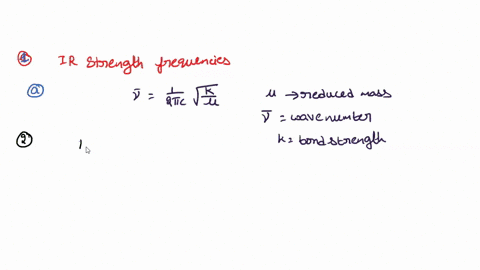 ① IR Strength frequencies
ⓐ ν̄ = 1/2πc √k/μ μ → reduced mass
ν̄ = wave number
k = bond strength
② 1